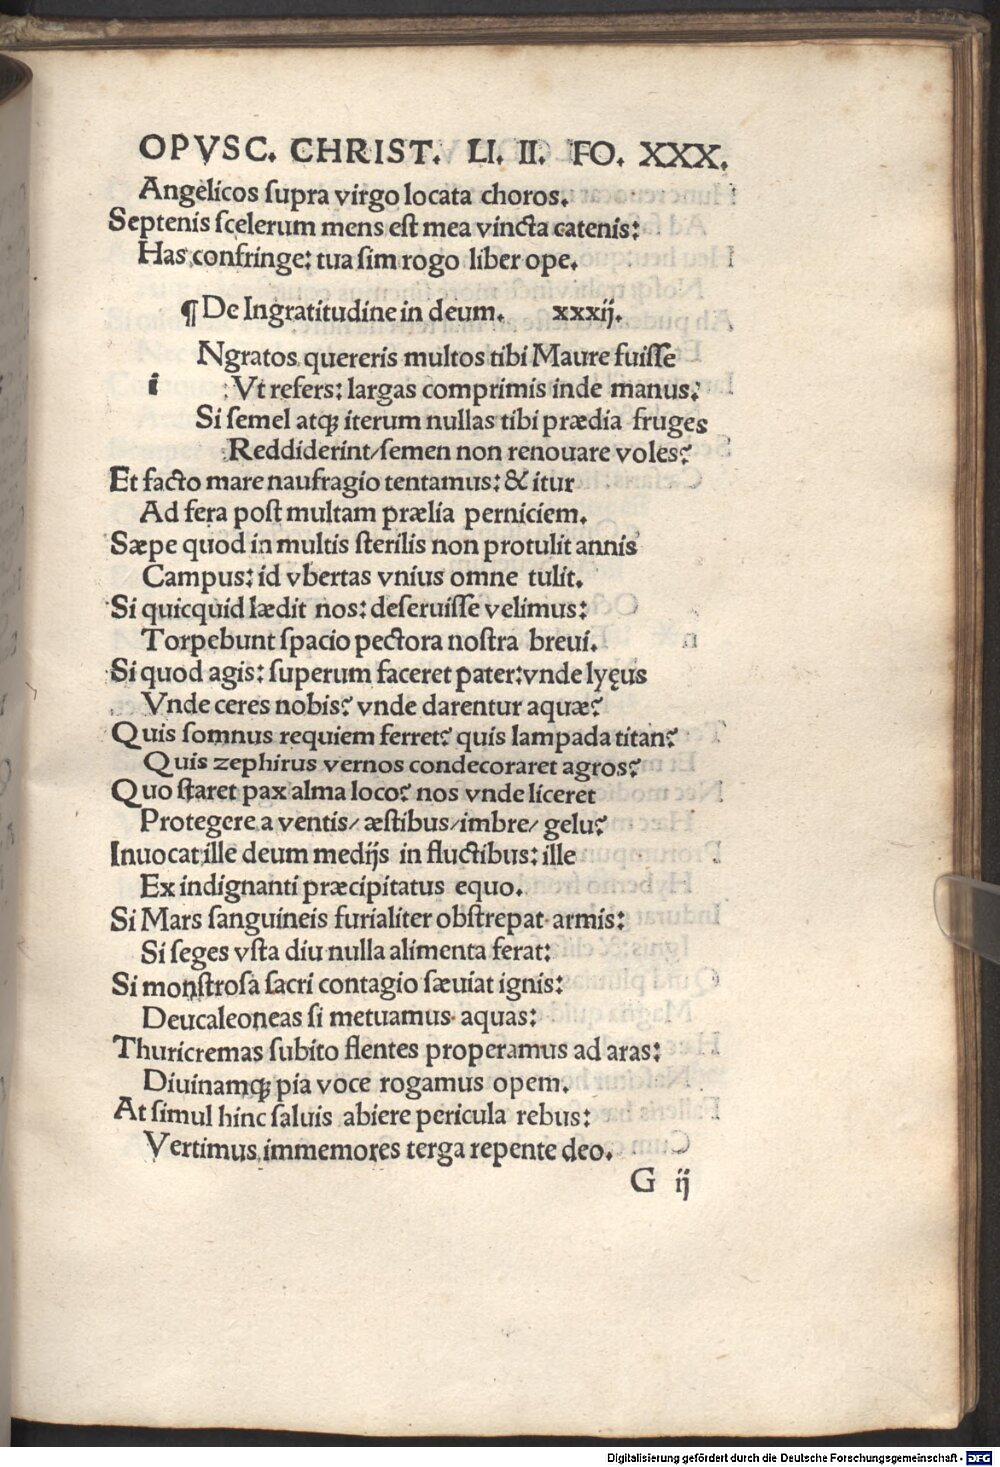 OPVSC. CHRIST. LI. II. FO. XXX.
Angelicos ſupra virgo locata choros.
Septenis ſcelerum mens eſt mea vincta catenis:
Has confringe: tua ſim rogo liber ope.
¶ De Ingratitudine in deum. xxxij.
Ngratos quereris multos tibi Maure fuiſſe
i Vt refers: largas comprimis inde manus.
Si ſemel atqꝫ iterum nullas tibi prædia fruges
Reddiderint/ſemen non renouare voles?
Et facto mare naufragio tentamus: & itur
Ad fera poſt multam prælia perniciem.
Sæpe quod in multis ſterilis non protulit annis
Campus: id vbertas vnius omne tulit.
Si quicquid lædit nos: deſeruiſſe velimus:
Torpebunt ſpacio pectora noſtra breui.
Si quod agis: ſuperum faceret pater: vnde lyęus
Vnde ceres nobis? vnde darentur aquæ?
Quis ſomnus requiem ferret? quis lampada titan?
Quis zephirus vernos condecoraret agros?
Quo ſtaret pax alma loco? nos vnde liceret
Protegere a ventis/ æſtibus/imbre/ gelu?
Inuocat ille deum medijs in fluctibus: ille
Ex indignanti præcipitatus equo.
Si Mars ſanguineis furialiter obſtrepat armis:
Si ſeges vſta diu nulla alimenta ferat:
Si monſtroſa ſacri contagio ſæuiat ignis:
Deucaleoneas ſi metuamus aquas:
Thuricremas ſubito flentes properamus ad aras:
Diuinamqꝫ pia voce rogamus opem.
At ſimul hinc ſaluis abiere pericula rebus:
Vertimus immemores terga repente deo.
G ij
Digitalisierung gefördert durch die Deutsche Forschungsgemeinschaft - DFG